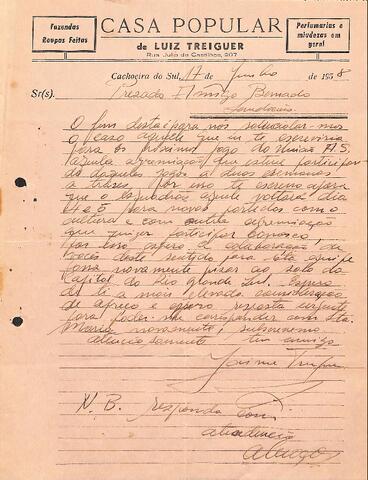 Fazendas
Roupas Feitas
CASA POPULAR
de LUIZ TREIGUER
Rua Julio de Castilhos, 207
Perfumarias e
miudezas em
geral
Cachoeira do Sul, 17 de Junho de 1958
Sr(s). Prezado Amigo Bernardo
Saudações
O fim desta é para nós
o caso daquele que eu te escreveria
para os próximos jogo da União A.S.
aquela agremiação que esteve participan
do daqueles jogos a duas semanas
a trás. Por isso te escrevo agora
que o esquadrão aquele voltará dia
4 e 5 para novas partidas com o
cultura e com outra agremiação
que queira participar conosco,
por isso espero a colaboração de
voces deste sentido para esta equipe
possa novamente pisar ao solo da
Capital do Rio Grande Sul. Espero
de ti a mais elevada consideração
de apreço e espero resposta urgente
para poder me corresponder com Sta.
Maria novamente, subscrevemo
atenciosamente teu amigo
Jaime
N.B. responda com
atendencia